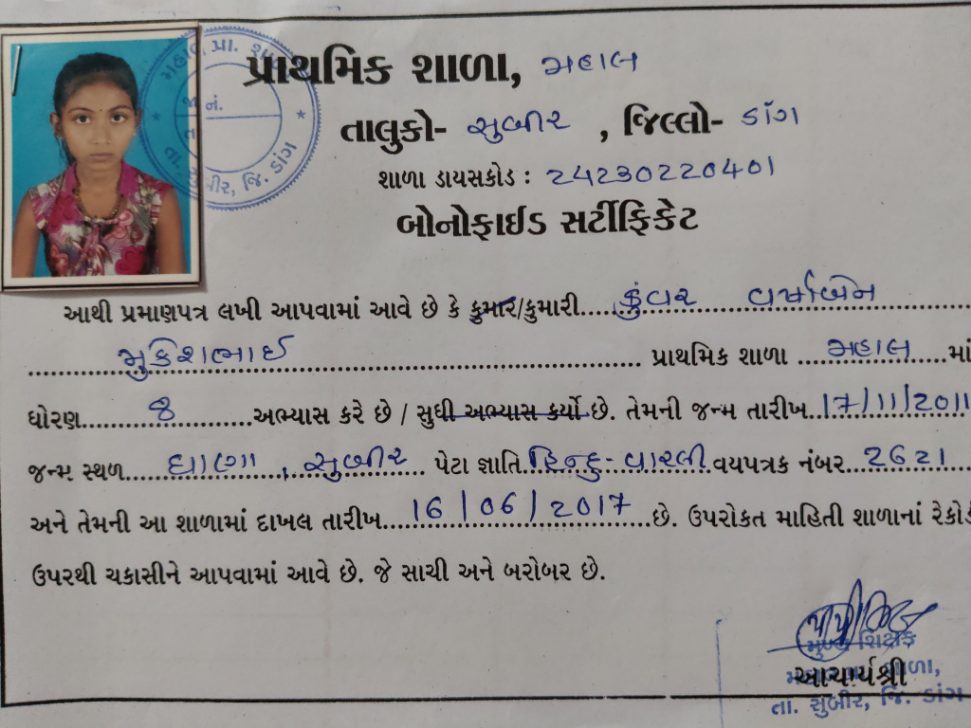 પ્રાથમિક શાળા, મહાલ
તાલુકો- સુબીર , જિલ્લો- ડાંગ
શાળા ડાયસકોડ : 24230220401
બોનોફાઈડ સર્ટીફિકેટ
આથી પ્રમાણપત્ર લખી આપવામાં આવે છે કે કુમાર/કુમારી.....કુંવર વર્ષાબેન
મુકેશભાઈ પ્રાથમિક શાળા ...મહાલ.....માં
ધોરણ......8......અભ્યાસ કરે છે / સુધી અભ્યાસ કર્યો છે. તેમની જન્મ તારીખ..17/11/2011
જન્મ સ્થળ ....ઘાણા, સુબીર... પેટા જ્ઞાતિ.હિન્દુ-વારલી.વયપત્રક નંબર..2621
અને તેમની આ શાળામાં દાખલ તારીખ....16/06/2017....છે. ઉપરોકત માહિતી શાળાનાં રેકોર્ડ
ઉપરથી ચકાસીને આપવામાં આવે છે. જે સાચી અને બરોબર છે.
મુખ્ય શિક્ષક
આચાર્યશ્રી
શાળા,
તા. સુબીર, જિ. ડાંગ